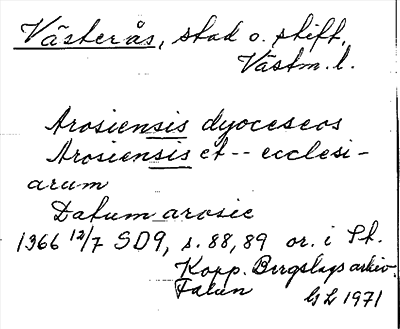 Västerås, stad o. stift,
Västm. l.
Arosiensis dyoceseos
Arosiensis et -- ecclesi-
arum
Datum arosie
1366 12/7 SD9, s. 88, 89 or. i St.
Kopp. Bergslags arkiv.
Falun
GL 1971